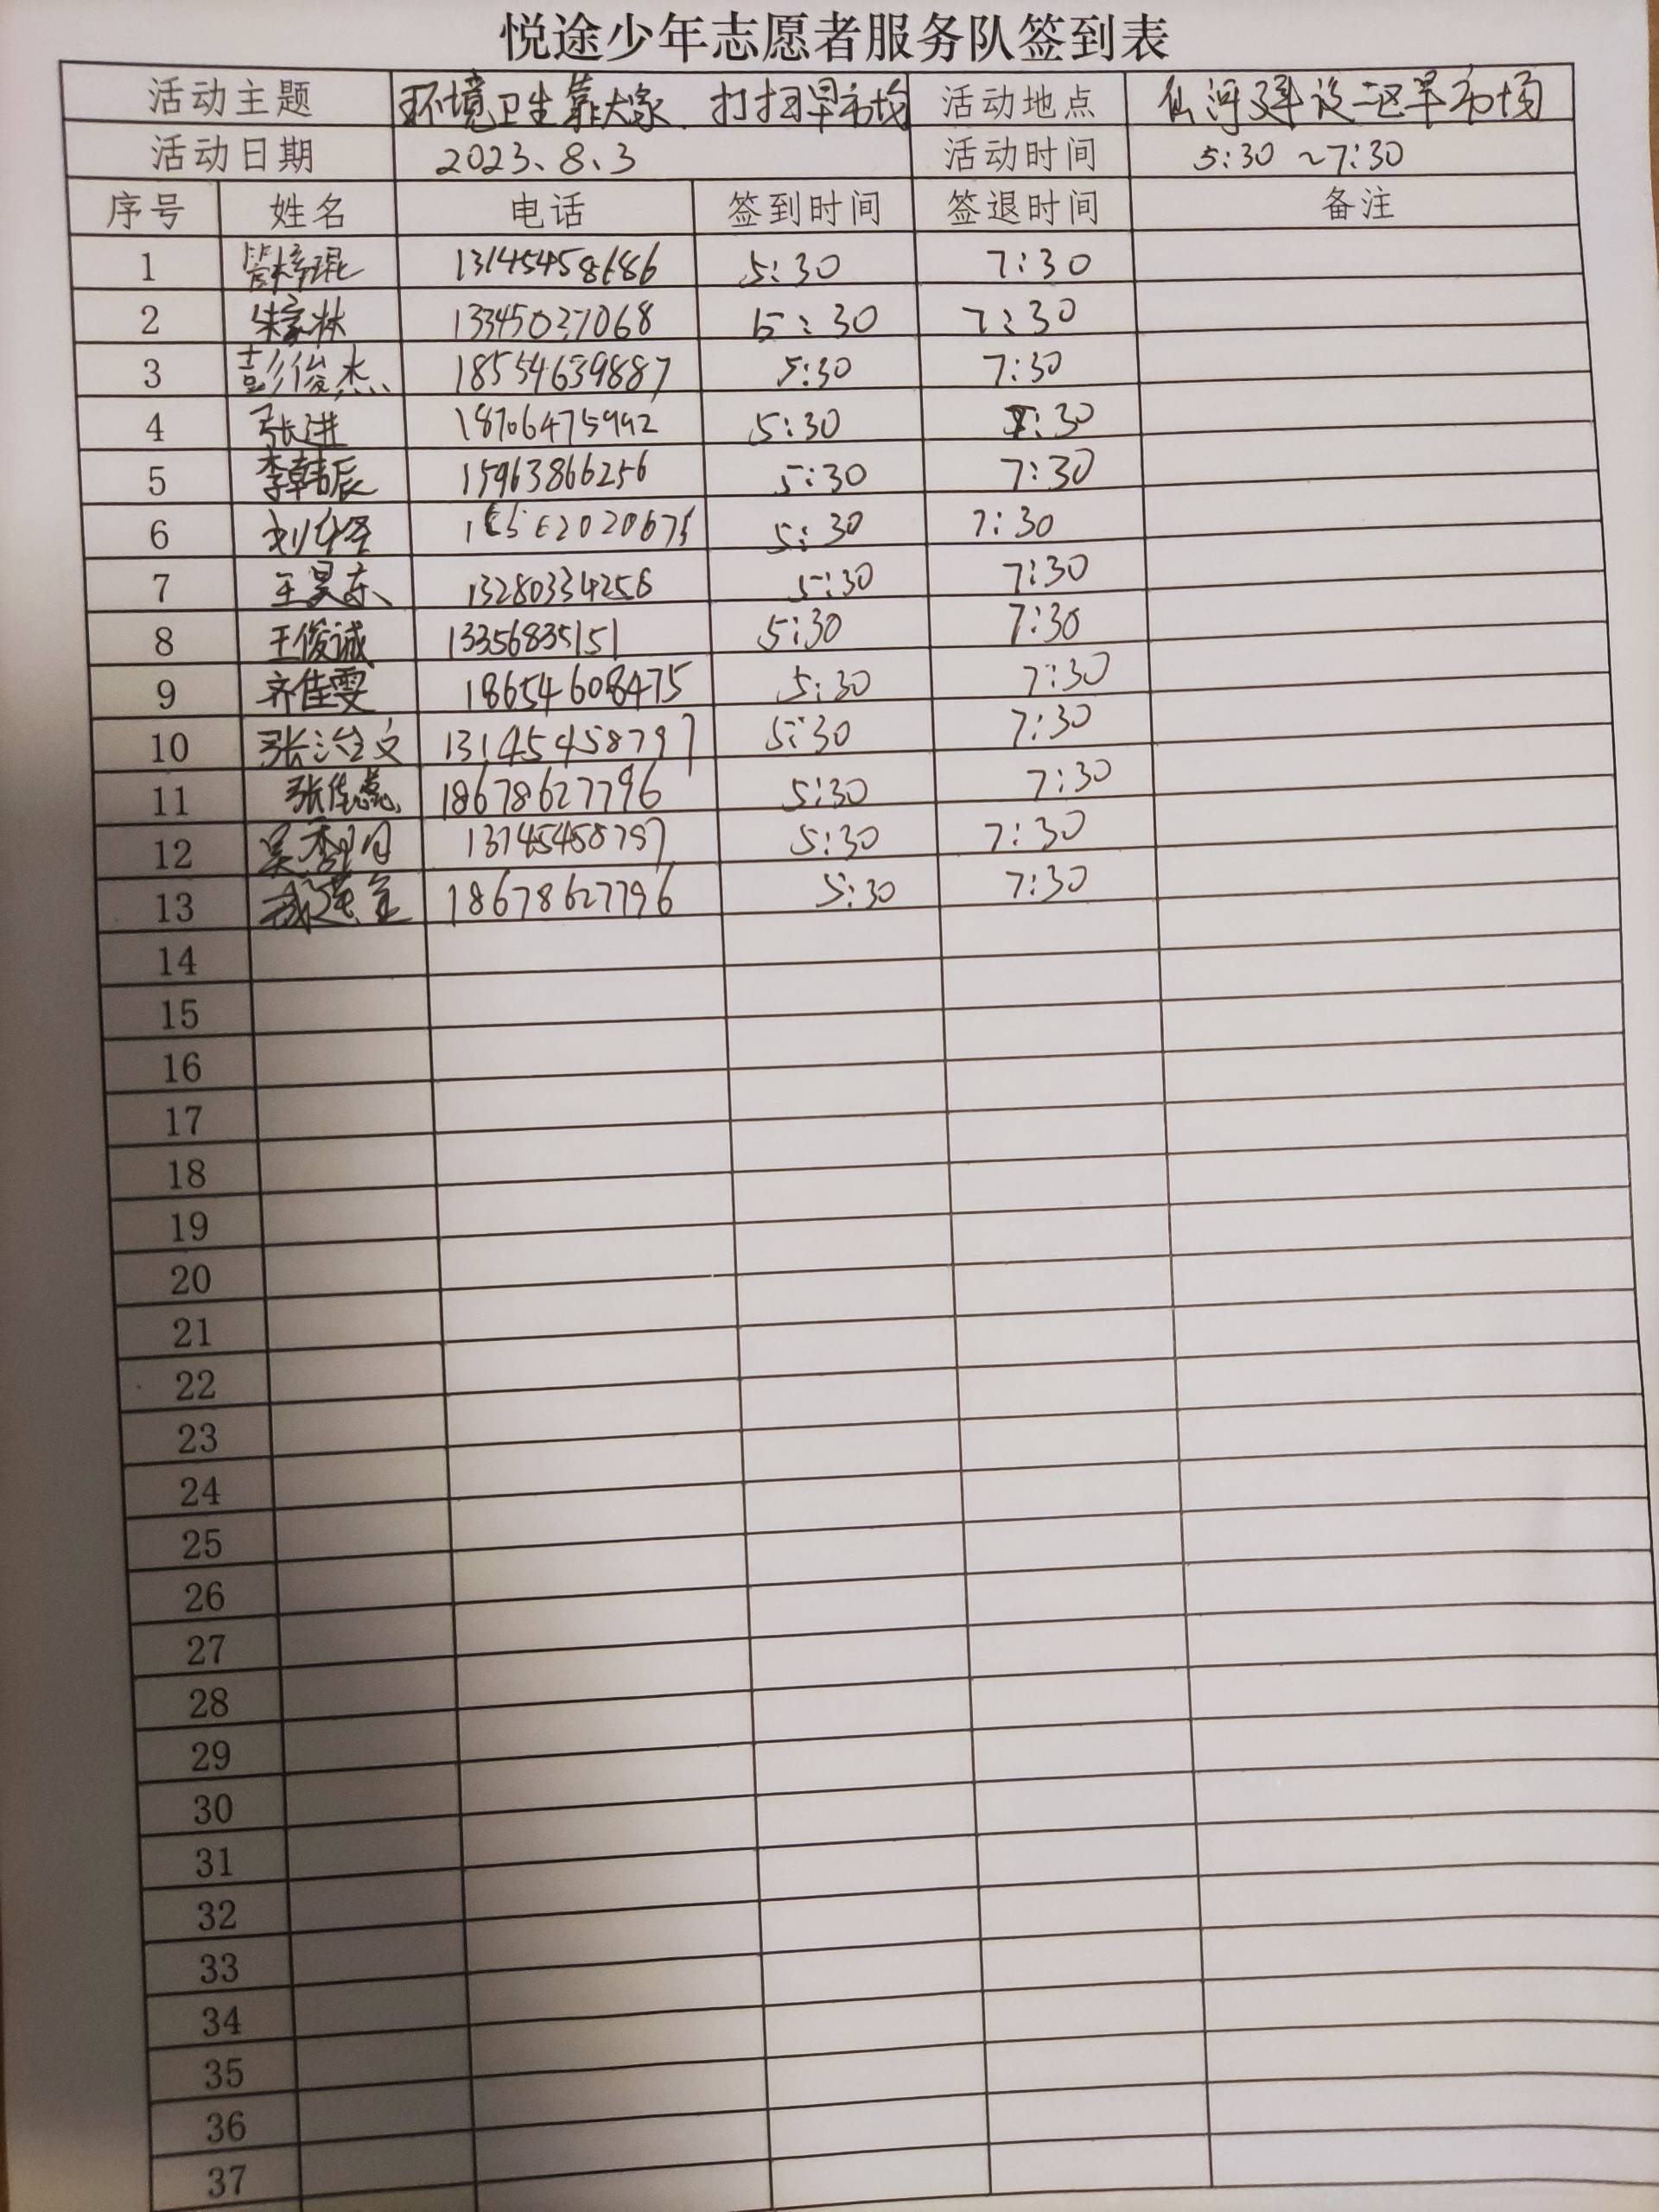 悦途少年志愿者服务队签到表
活动主题 环境卫生靠大家 打扫早市场 活动地点 仙河建设二区早市场
活动日期 2023、8、3 活动时间 5:30 ~7:30
序号 姓名 电话 签到时间 签退时间 备注
1 管梓琨 13145458686 5:30 7:30
2 朱家林 13345037068 5:30 7:30
3 彭俊杰 18554639887 5:30 7:30
4 张进 18706475992 5:30 7:30
5 李韩辰 15963866256 5:30 7:30
6 5:30 7:30
7 王昊东 13280334256 5:30 7:30
8 王俊诚 13356835151 5:30 7:30
9 齐佳雯 18654608475 5:30 7:30
10 张洤文 13145458797 5:30 7:30
11 张佳蕊 18678627796 5:30 7:30
12 5:30 7:30
13 18678627796 5:30 7:30
14
15
16
17
18
19
20
21
22
23
24
25
26
27
28
29
30
31
32
33
34
35
36
37